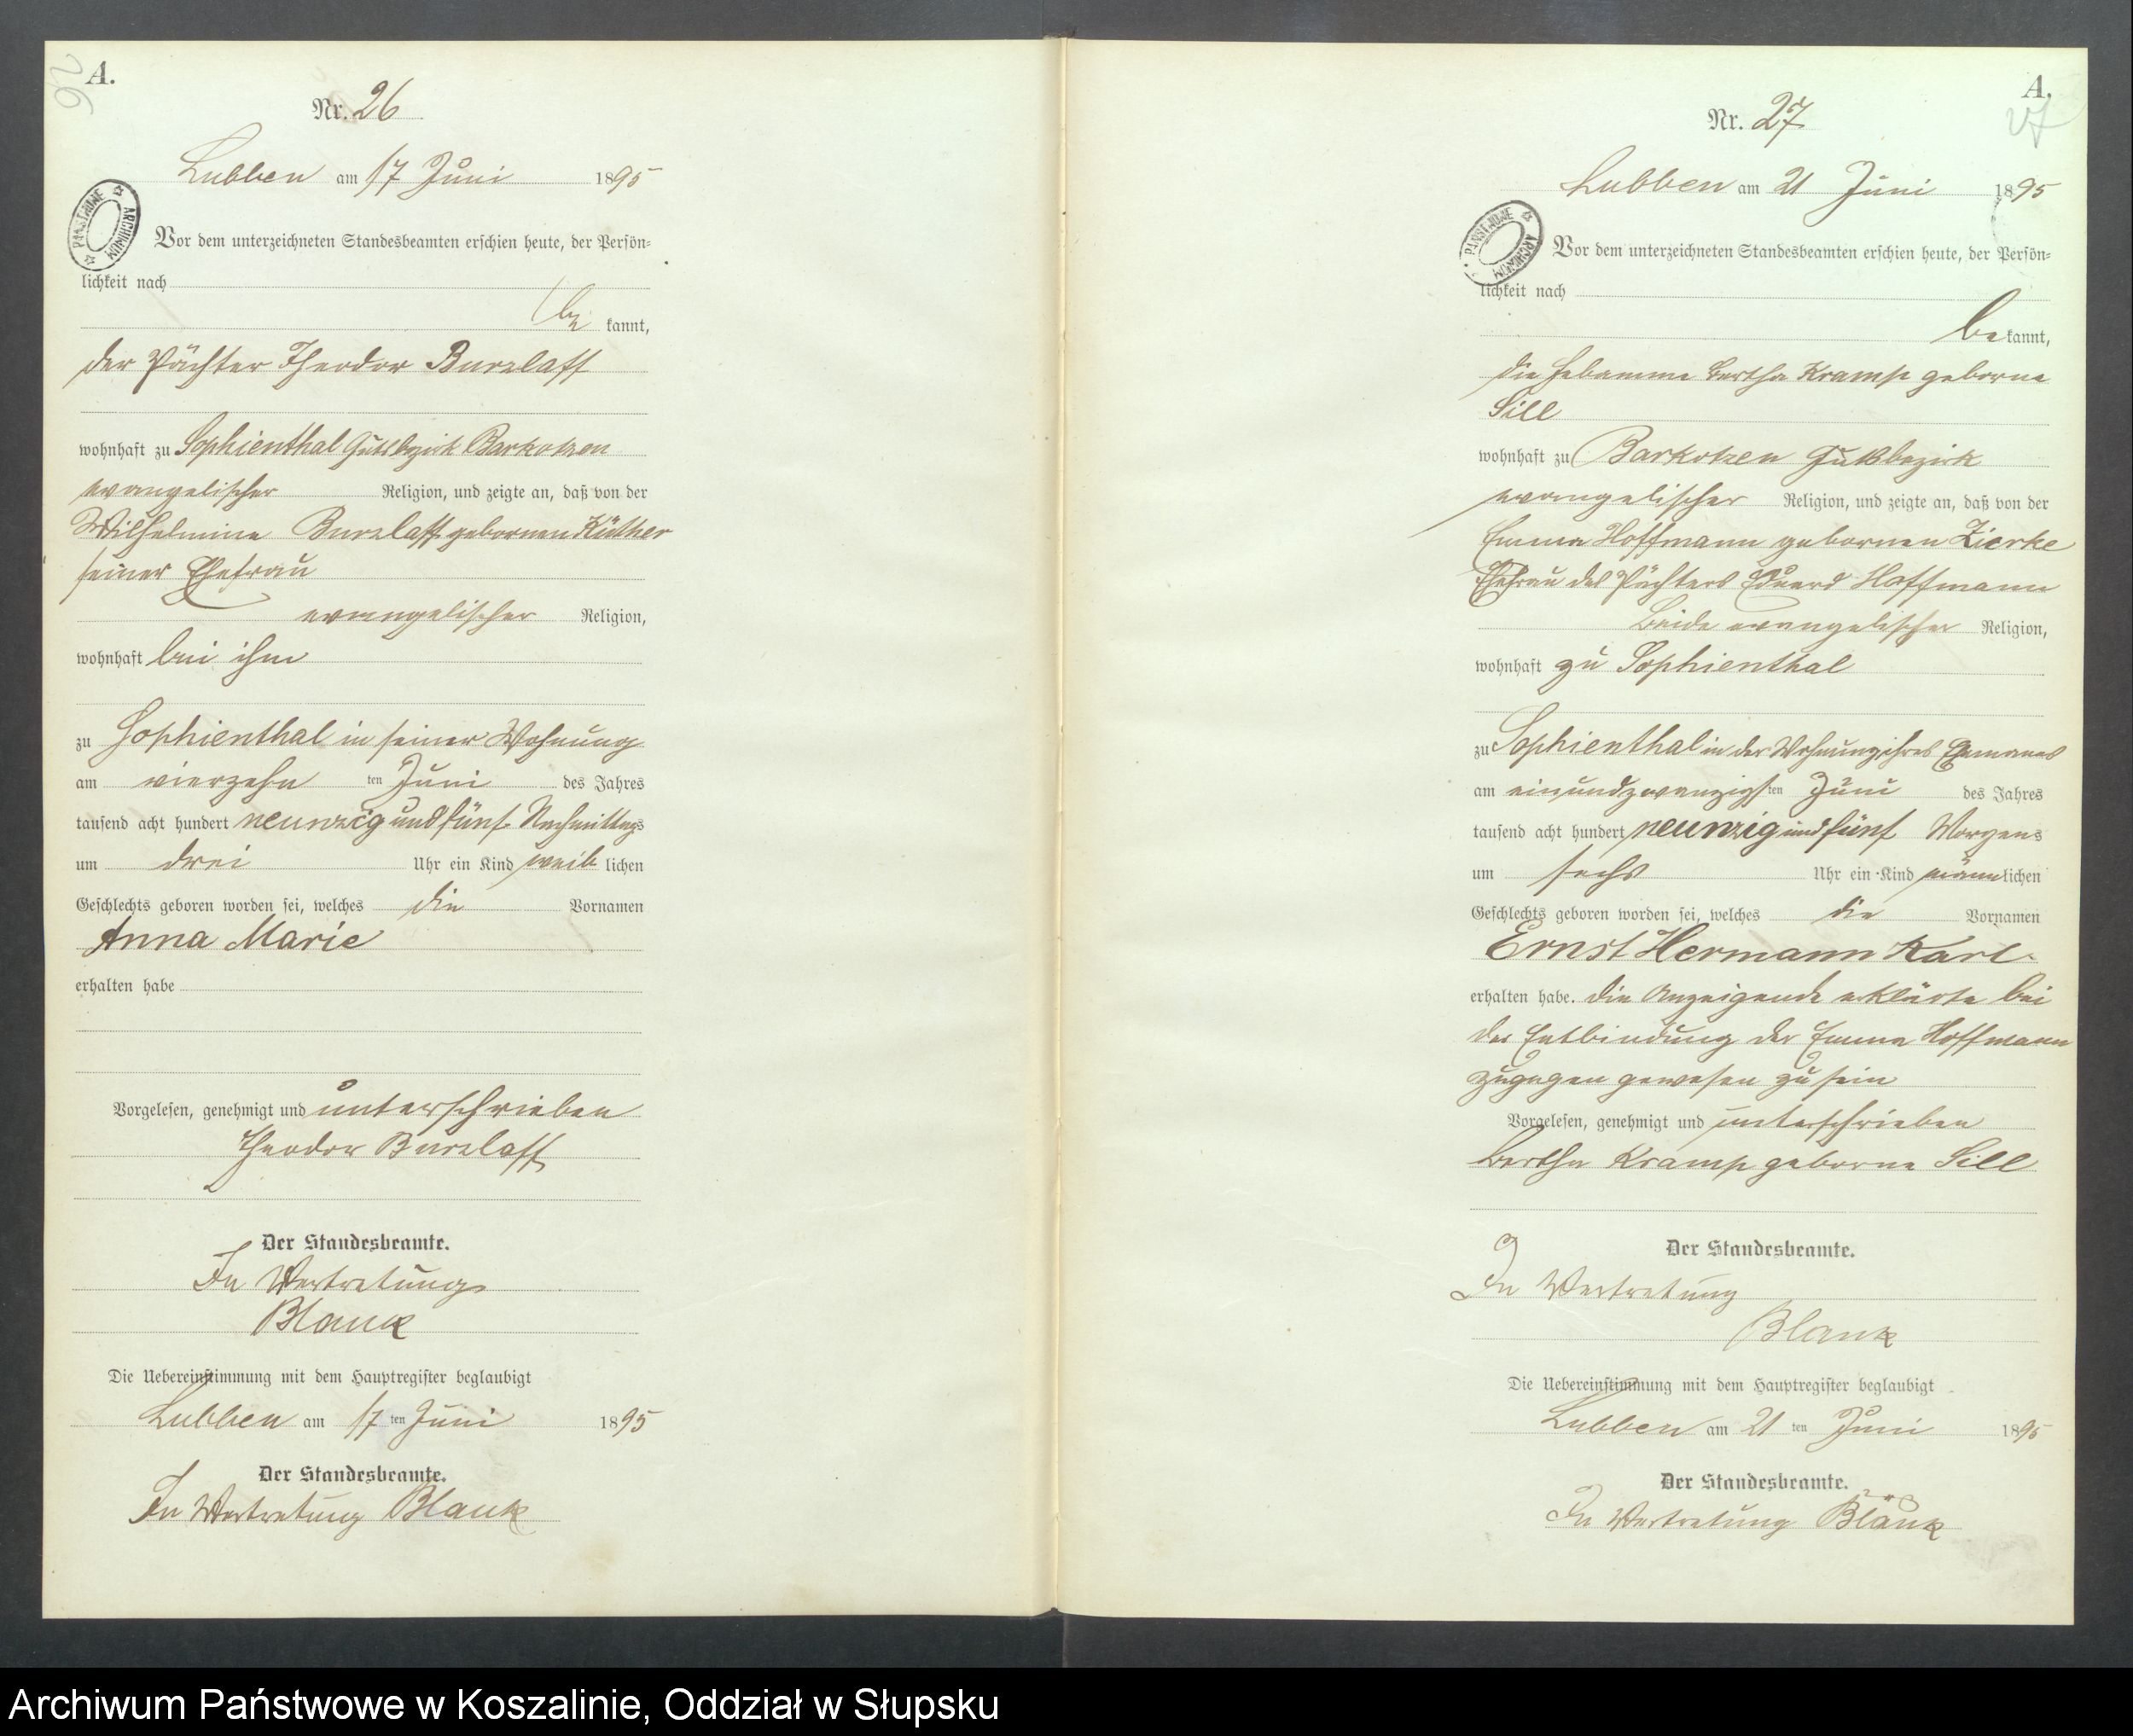 26
A.
Nr. 26
Lubben am 17 Juni 1895
PAŃSTWOWE ARCHIWUM
Vor dem unterzeichneten Standesbeamten erschien heute, der Persön-
lichkeit nach
be kannt,
der Pächter Theodor Burzlaff
wohnhaft zu Sophienthal Gutsbezirk Barkotzen
evangelischer Religion, und zeigte an, daß von der
Wilhelmine Burzlaff gebornen Küther
seiner Ehefrau
evangelischer Religion,
wohnhaft bei ihm
zu Sophienthal in seiner Wohnung
am vierzehn ten Juni des Jahres
tausend acht hundert neunzig und fünf Nachmittags
um drei Uhr ein Kind weib lichen
Geschlechts geboren worden sei, welches die Vornamen
Anna Marie
erhalten habe
Vorgelesen, genehmigt und unterschrieben
Theodor Burzlaff
Der Standesbeamte.
In Vertretung
Blank
Die Uebereinstimmung mit dem Hauptregister beglaubigt
Lubben am 17 ten Juni 1895
Der Standesbeamte.
In Vertretung Blank
A.
27
Nr. 27
Lubben am 21 Juni 1895
PAŃSTWOWE ARCHIWUM
Vor dem unterzeichneten Standesbeamten erschien heute, der Persön-
lichkeit nach
be kannt,
die Hebamme Bertha Kramp geborne
Sill
wohnhaft zu Barkotzen Gutsbezirk
evangelischer Religion, und zeigte an, daß von der
Emma Hoffmann gebornen Zierke
Ehefrau des Pächters Eduard Hoffmann
Beide evangelischer Religion,
wohnhaft zu Sophienthal
zu Sophienthal in der Wohnung ihres Ehemanes
am einundzwanzigs ten Juni des Jahres
tausend acht hundert neunzig und fünf Morgens
um sechs Uhr ein Kind männ lichen
Geschlechts geboren worden sei, welches die Vornamen
Ernst Hermann Karl
erhalten habe. die Anzeigende erklärte bei
der Entbindung der Emma Hoffmann
zugegen gewesen zu sein
Vorgelesen, genehmigt und unterschrieben
Bertha Kramp geborne Sill
Der Standesbeamte.
In Vertretung
Blank
Die Uebereinstimmung mit dem Hauptregister beglaubigt
Lubben am 21 ten Juni 1895
Der Standesbeamte.
In Vertretung Blank
Archiwum Państwowe w Koszalinie, Oddział w Słupsku